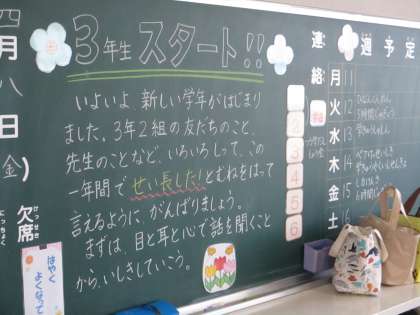 四月八日(金)
欠席
けっせき
にっちょく
はやく
よくなって
3年生 スタート!!
いよいよ、新しい学年がはじまり
ました。3年2組の友だちのこと、
先生のことなど、いろいろしって、この
一年間で せい長した! とむねをはって
言えるように がんばりましょう。
まずは、目と耳と心で話を聞くこと
から、いしきしていこう。
連絡
週予定
月 11
火 12
水 13
木 14
金 15
土 16
2
3
4
5
6